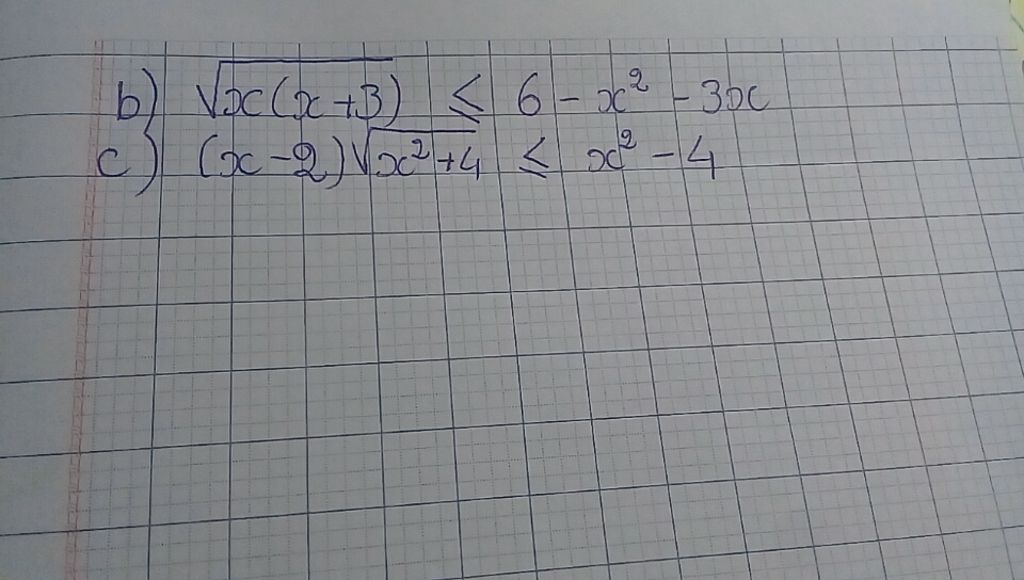 b) √x(x+3) ≤ 6 - x² - 3x
c) (x-2)√x²+4 ≤ x² - 4